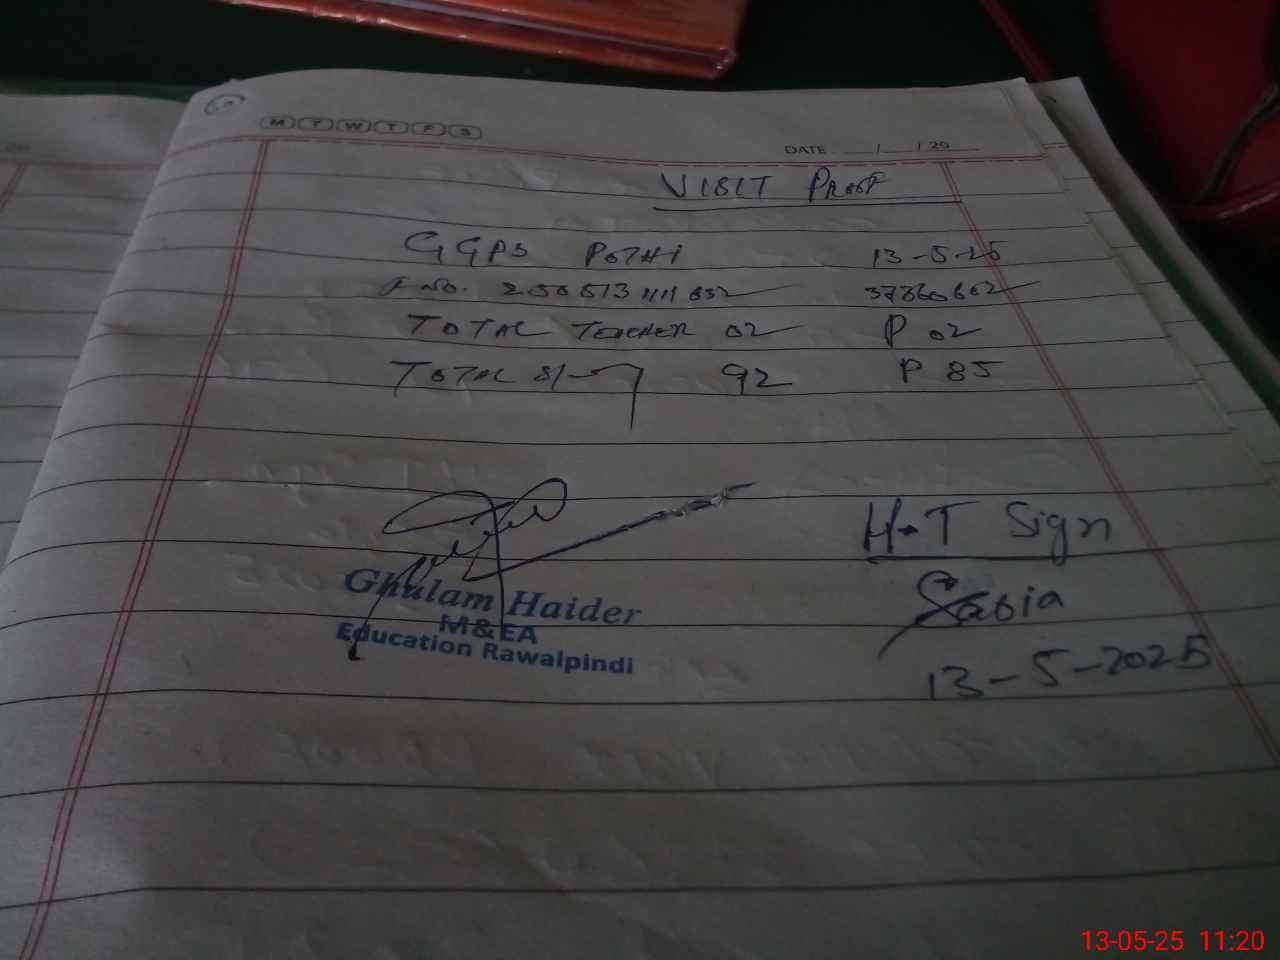 M T W T F S
DATE / / 20
VISIT PROOF
GGPS POTHI 13-5-25
F No. 37360602
TOTAL TEACHER 02 P 02
TOTAL 92 P 85
H.T Sign
Sabia
13-5-2025
Ghulam Haider
M&EA
Education Rawalpindi
13-05-25 11:20